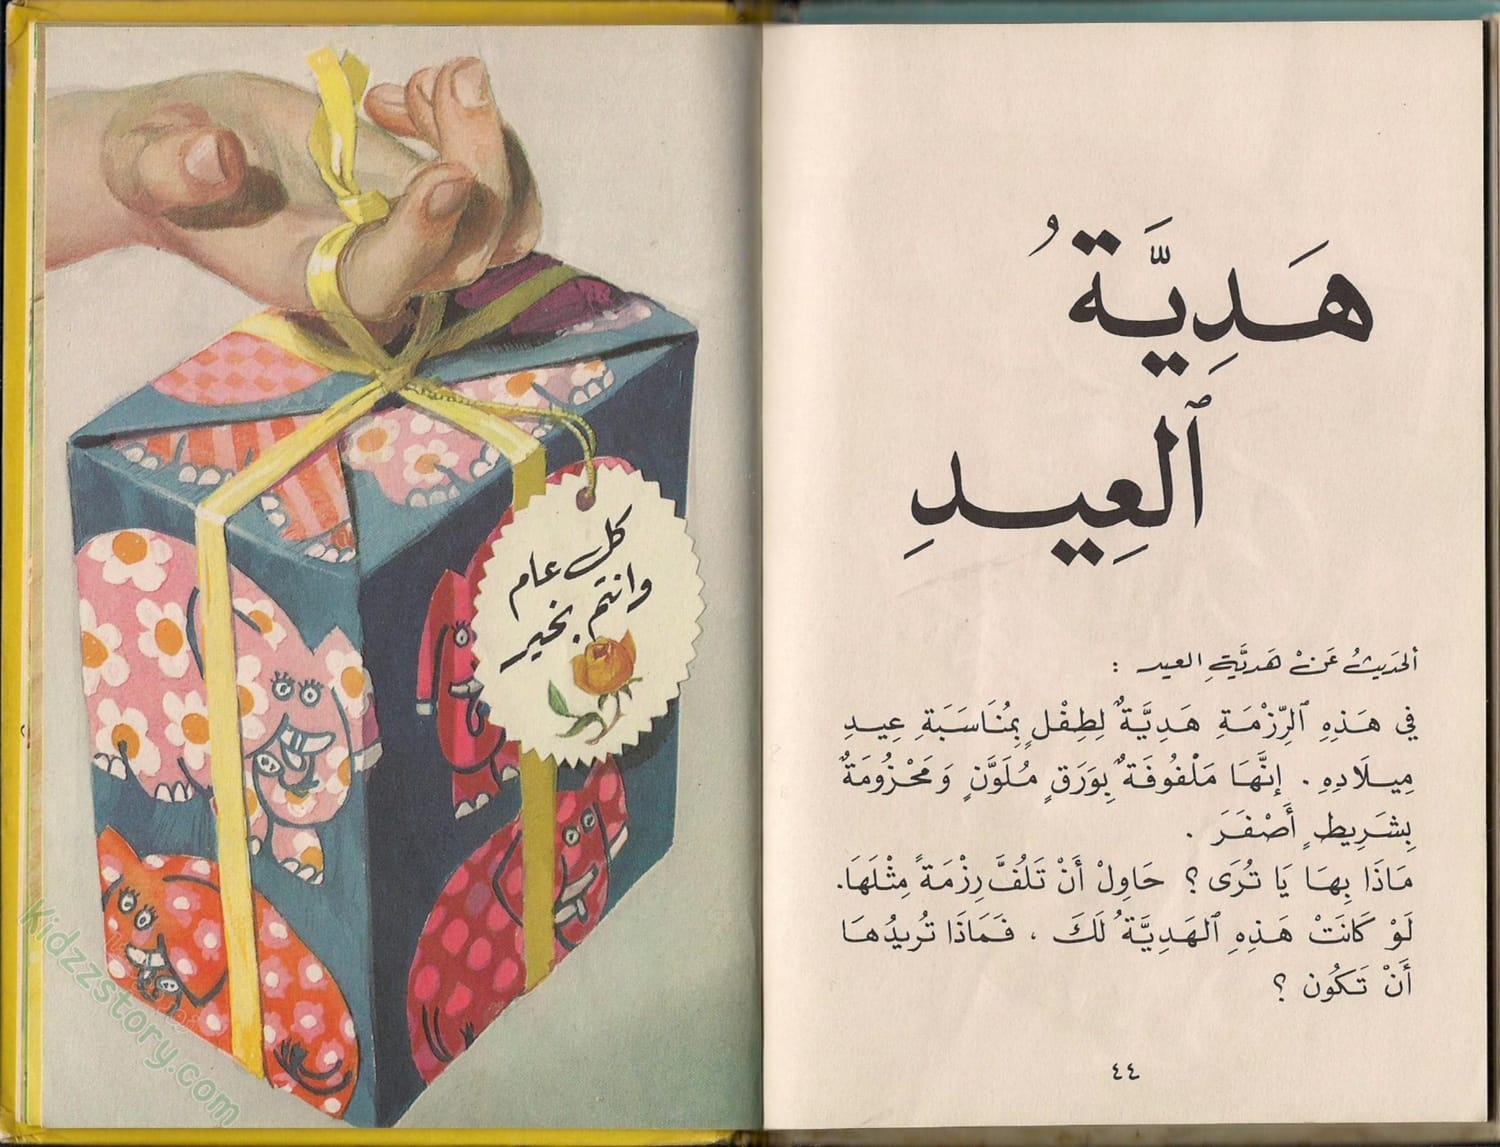 هَدِيَّةُ
ٱلعِيدِ
ألحَديثُ عَنْ هَديَّةِ العيد :
في هَذِهِ ٱلرِّزْمَةِ هَدِيَّةٌ لِطِفْلٍ بِمُنَاسَبَةِ عِيدِ
مِيلَادِهِ . إنَّهَا مَلْفُوفَةٌ بِوَرَقٍ مُلَوَّنٍ وَمَحْزُومَةٌ
بِشَرِيطٍ أَصْفَرَ .
مَاذَا بِهَا يَا تُرَى ؟ حَاوِلْ أَنْ تَلُفَّ رِزْمَةً مِثْلَهَا.
لَوْ كَانَتْ هَذِهِ ٱلهَدِيَّةُ لَكَ ، فَمَاذَا تُرِيدُهَا
أَنْ تَكُونَ ؟
٤٤
كل عام
وانتم بخير
Kidzzstory.com